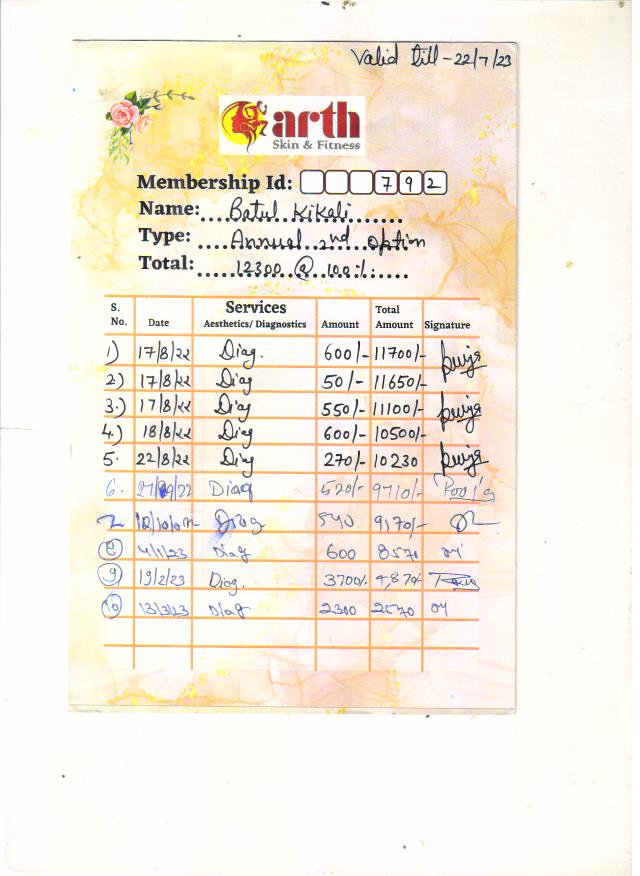 Valid till - 22/7/23
arth
Skin & Fitness
Membership Id: 792
Name: Batul Kikali
Type: Annual 2nd option
Total: 12300 @ 100%
S. No. Date Services Aesthetics/ Diagnostics Amount Total Amount Signature
1) 17/8/22 Diag. 600/- 11700/-
2) 17/8/22 Diag 50/- 11650/-
3.) 17/8/22 Diag 550/- 11100/-
4.) 18/8/22 Diag 600/- 10500/-
5. 22/8/22 Diag 270/- 10230
6. Diag 520/- 9710/-
Diag 540 9170/-
8 4/1/23 Diag 600 8570
9 19/2/23 Diag. 3700/- 4,870/-
10 13/3/23 Diag 2300 2570